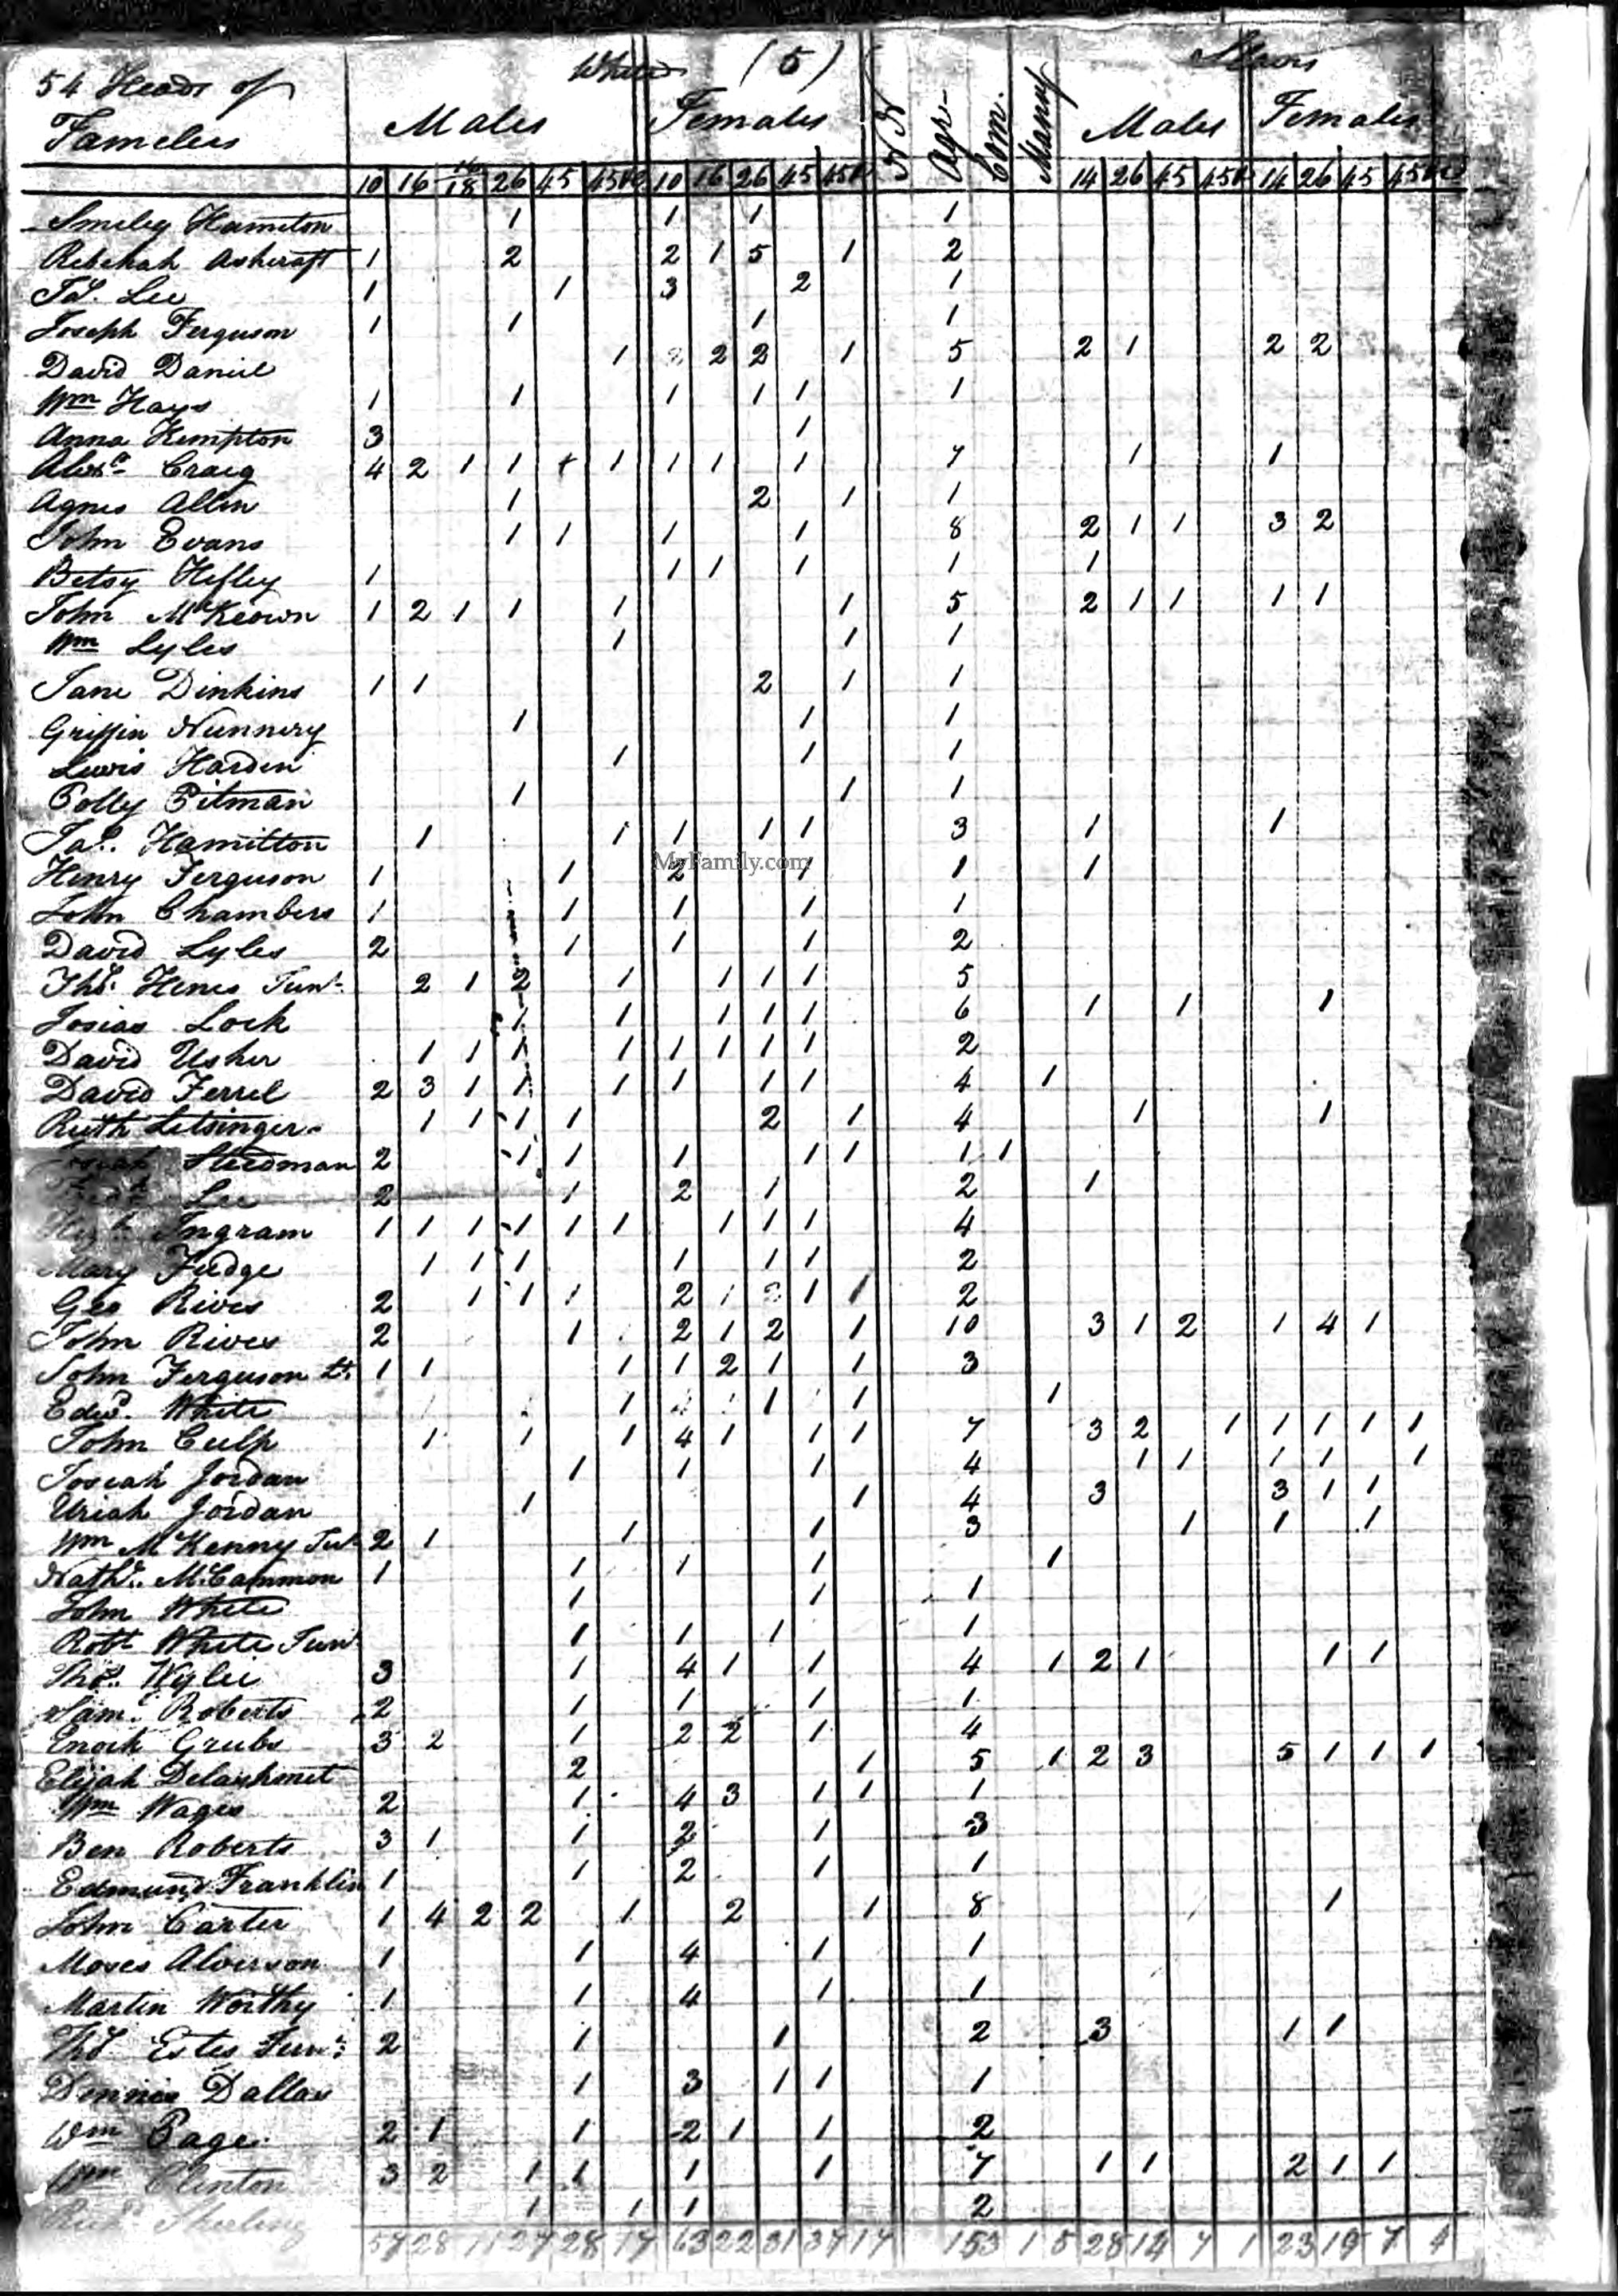 White (5) Slaves
54 Heads of
Famelies Males Females Agr. Com. Manuf Males Females
10 16 16/18 26 45 45&c 10 16 26 45 45& 14 26 45 45& 14 26 45 45&c
Smiley Hamelton 1 1 1 1
Rebekah Ashcraft 1 2 2 1 5 1 2
Jas. Lee 1 1 3 2 1
Joseph Ferguson 1 1 1 1
David Daniel 1 2 2 2 1 5 2 1 2 2
Wm Hays 1 1 1 1 1 1
Anna Kimpton 3 1
Alexr Craig 4 2 1 1 + 1 1 1 1 7 1 1
Agnes Allen 1 2 1 1
John Evans 1 1 1 1 8 2 1 1 3 2
Betsy Hefley 1 1 1 1 1 1
John McKeown 1 2 1 1 1 1 5 2 1 1 1 1
Wm Lyles 1 1 1
Jane Dinkins 1 1 2 1 1
Griffin Nunnery 1 1 1
Lewis Hardin 1 1 1
Polly Pitman 1 1 1
Jas. Hamitton 1 1 1 1 1 3 1 1
MyFamily.com
Henry Ferguson 1 1 2 1 1 1
John Chambers 1 1 1 1 1
David Lyles 2 1 1 1 2
Thos. Henes Junr. 2 1 2 1 1 1 1 5
Josias Lock 1 1 1 1 1 6 1 1 1
David Usher 1 1 1 1 1 1 1 1 2
David Ferrel 2 3 1 1 1 1 1 1 4 1
Ruth Letsinger 1 1 1 1 2 1 4 1 1
Steedman 2 1 1 1 1 1 1 1
Lee 2 1 2 1 2 1
Ingram 1 1 1 1 1 1 1 1 1 4
Mary Fudge 1 1 1 1 1 1 2
Geo Rives 2 1 1 1 2 1 2 1 1 2
John Rives 2 1 2 1 2 1 10 3 1 2 1 4 1
John Ferguson 1 1 1 1 2 1 1 3
Edwd. White 1 1 1 1
John Culp 1 1 1 4 1 1 1 7 3 2 1 1 1 1 1
Josiah Jordan 1 1 1 4 1 1 1 1 1
Uriah Jordan 1 1 4 3 3 1 1
Wm McKenny Jur 2 1 1 1 3 1 1 1
Nathl. McCammon 1 1 1 1 1
John White 1 1 1
Robt White Jun 1 1 1 1
Thos. Wylie 3 1 4 1 1 4 1 2 1 1 1
Saml. Roberts 2 1 1 1 1
Enoch Grubs 3 2 1 2 2 1 4
Elijah Delashmet 2 1 5 1 2 3 5 1 1 1
Wm Wages 2 1 4 3 1 1 1
Ben Roberts 3 1 1 2 1 3
Edmund Franklin 1 1 2 1 1
John Carter 1 4 2 2 1 2 1 8 1
Moses Alverson 1 1 4 1 1
Martin Worthy 1 1 4 1 1
Thos. Estes Junr. 2 1 1 2 3 1 1
Dennis Dallas 1 3 1 1 1
Wm Page 2 1 1 2 1 1 2
Wm Clinton 3 2 1 1 1 1 7 1 1 2 1 1
Richd. Sherling 1 1 1 2
28 11 27 28 17 63 22 31 34 14 153 1 5 28 14 7 1 23 19 7 4